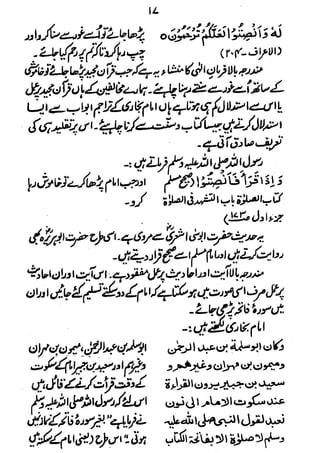 ۱۷
لَهُ وَاَنْصِتُوْا لَعَلَّكُمْ تُرْحَمُوْنَ ٥
(الاعراف۔۲۰۴)
پڑھا جائے تو اُسے غور سے سنا کرو اور
چپ رہا کرو تاکہ تم پر رحم کیا جائے۔
مندرجہ بالا فرمانِ الٰہی کا منشاء یہ ہے کہ جب قرآن مجید پڑھا جائے تو خاموشی
کے ساتھ اُسے غور سے سنتے رہنا چاہیئے۔ ہمارے مخالفین کے ہاں قرآن مجید پر عمل
یا اس سے استدلال کم ہی ہوتا ہے ہاں امام بخاری کے تراجم ابواب سے ایسا
استدلال کرتے ہیں جیسا کتاب و سنت سے کرنا چاہیئے۔ اس پر تقلید ہی کی
تعریف صادق آتی ہے۔
رسول اللہ صلی اللہ علیہ وسلم فرماتے ہیں:۔
وَاِذَا قَرَأَ فَاَنْصِتُوْا (صحیح مسلم
کتاب الصلوٰة باب التشهد فی الصلوٰة
جزء اول ص۱۷۳)
اور جب امام پڑھا کرے تو خاموش رہا
کرو۔
یہ حدیث حضرت ابو موسیٰ اشعریؓ سے مروی ہے۔ اسی طرح حضرت ابو ہریرہؓ بھی
روایت کرتے ہیں اور امام مسلم اسے صحیح قرار دیتے ہیں۔
مندرجہ بالا آیت اور احادیث پر عمل مفقود ہے۔ اس آیت اور ان احادیث
پر عمل صرف اسی صورت میں ہو سکتا ہے کہ امام کے دو سکتے تسلیم کئے جائیں اور ان
میں سورۂ فاتحہ پڑھی جائے۔
امام بخاری لکھتے ہیں:۔
وکان ابو سلمة بن عبد الرحمٰن
ومیمون بن مهران وغیرهم و
سعید بن جبیر یرون القراءة
عند سکوت الامام الی نون
نعبد لقول النبی صلی الله علیه
وسلم لا صلوٰة الا بفاتحة الکتاب
ابو سلمہ بن عبد الرحمٰن، میمون بن مہران
وغیرہم اور سعید بن جبیر امام کے سکوت
کے وقت قرأت کرنے کے قائل ہیں
اس لئے کہ رسول اللہ صلی اللہ علیہ وسلم
نے فرمایا ہے "بغیر سورۂ فاتحہ کے نماز نہیں
ہوتی"۔ اس طرح (یعنی امام کے سکتہ میں